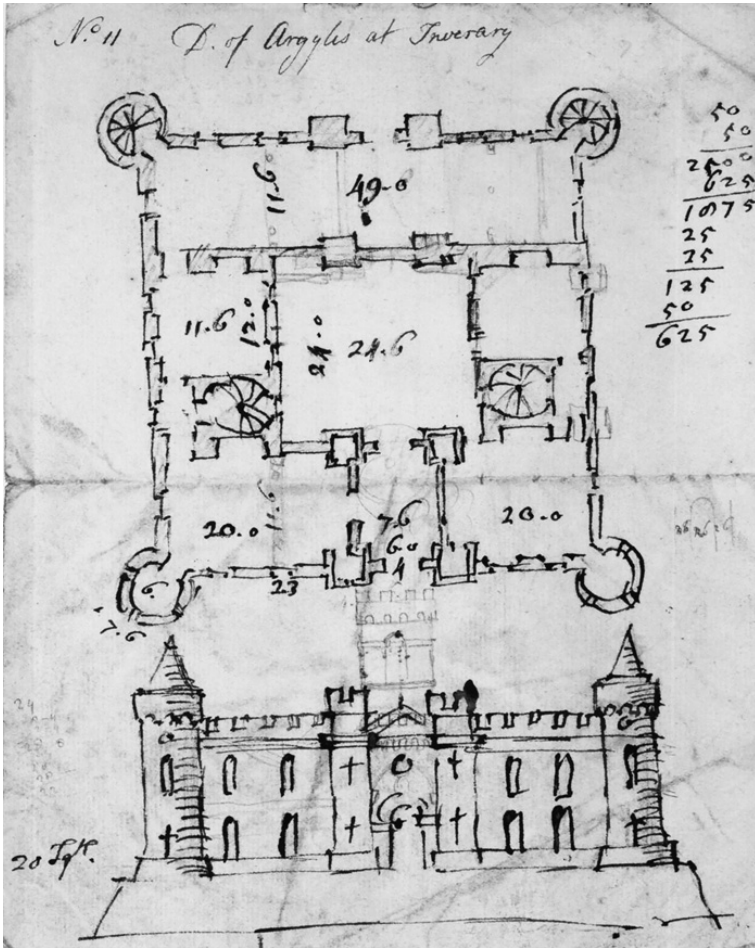 No. 11 D. of Argyles at Inverary
50
50
2500
625
1875
25
25
125
50
625
11.6
49.0
11.6
12.0
24.0
24.6
20.0
11.0
7.6
6.0
4
20.0
23
6
7.6
20